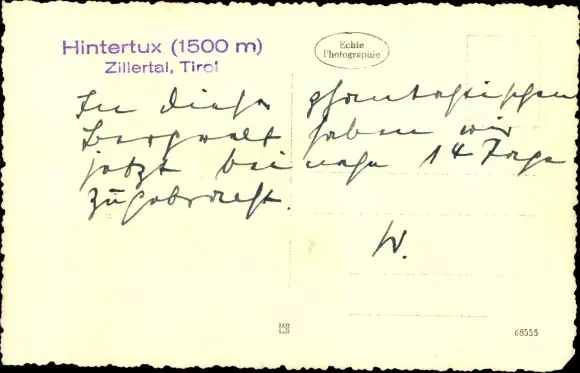 Hintertux (1500 m)
Zillertal, Tirol
Echte
Photographie
In dieser phantastischen
Bergwelt haben wir
jetzt beinahe 14 Tage
zugebracht.
W.
68555